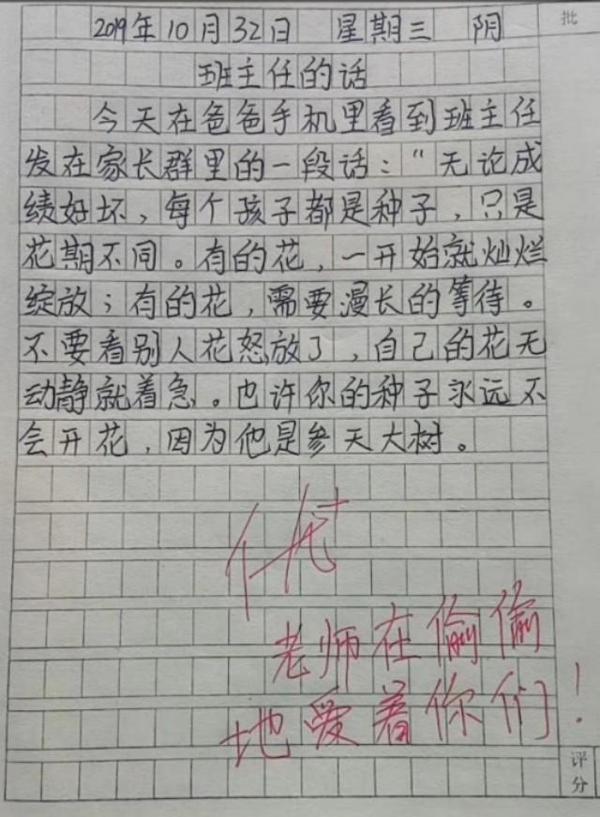 批
2019年10月32日 星期三 阴
班主任的话
今天在爸爸手机里看到班主任
发在家长群里的一段话：“无论成
绩好坏，每个孩子都是种子，只是
花期不同。有的花，一开始就灿烂
绽放；有的花，需要漫长的等待。
不要看别人花怒放了，自己的花无
动静就着急。也许你的种子永远不
会开花，因为他是参天大树。
优+
老师在偷偷
地爱着你们！
评分